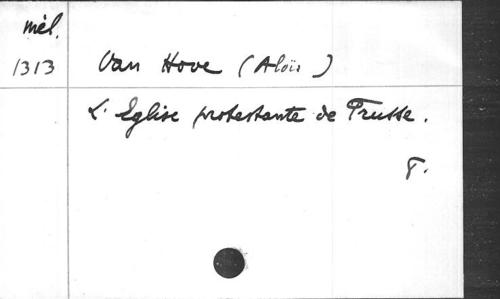 mél.
1313 Van Hove (Aloïs)
L'Eglise protestante de Prusse.
8.